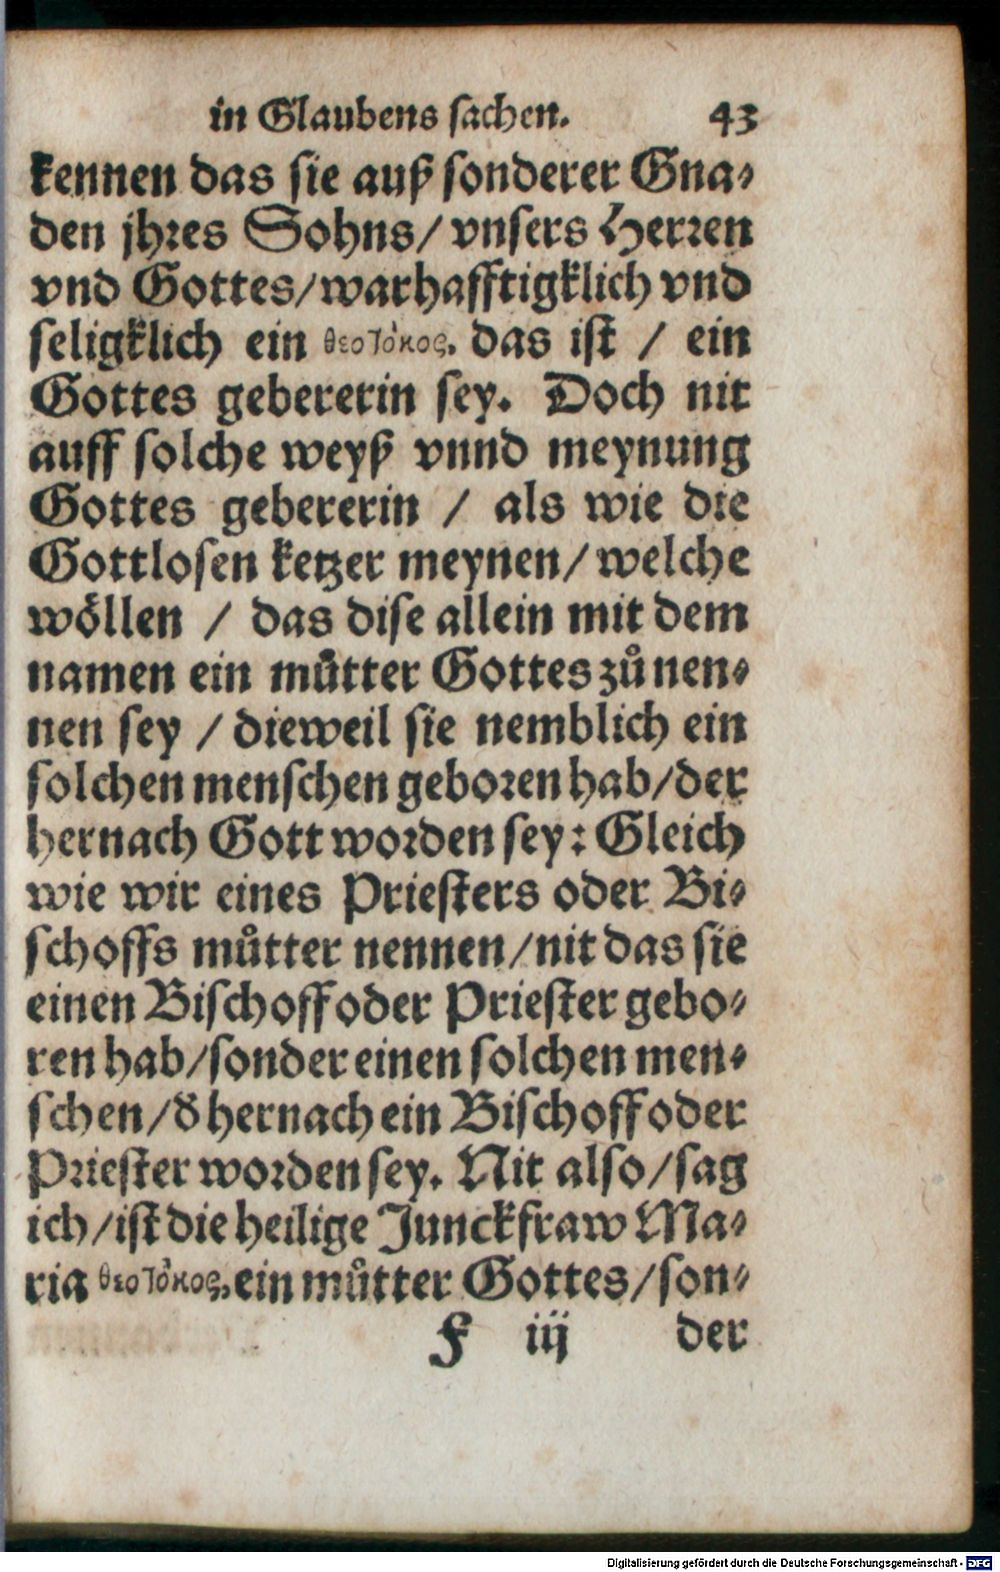 in Glaubens sachen. 43
kennen das sie auß sonderer Gna-
den jhres Sohns/ vnsers Herren
vnd Gottes/warhafftigklich vnd
seligklich ein θεοτόκος. das ist / ein
Gottes gebererin sey. Doch nit
auff solche weyß vnnd meynung
Gottes gebererin / als wie die
Gottlosen ketzer meynen/ welche
wöllen / das dise allein mit dem
namen ein můtter Gottes zů nen-
nen sey / dieweil sie nemblich ein
solchen menschen geboren hab/der
hernach Gott worden sey: Gleich
wie wir eines Priesters oder Bi-
schoffs můtter nennen/nit das sie
einen Bischoff oder Priester gebo-
ren hab/sonder einen solchen men-
schen/d̕ hernach ein Bischoff oder
Priester worden sey. Nit also/sag
ich/ist die heilige Junckfraw Ma-
ria θεοτόκος, ein můtter Gottes/son-
F iij der
Digitalisierung gefördert durch die Deutsche Forschungsgemeinschaft - DFG